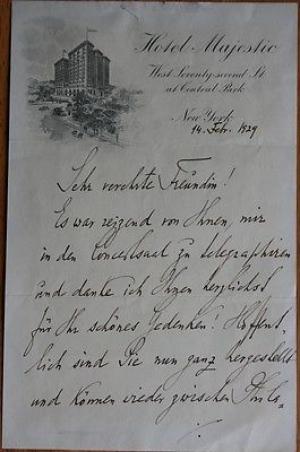 Hotel Majestic
West Seventy-second St
at Central Park
New York
14. Feb. 1929
Sehr verehrte Freundin!
Es war reizend von Ihnen, mir
in den Concertsaal zu telegraphiren
und danke ich Ihnen herzlichst
für Ihr schönes Gedenken! Hoffent-
lich sind Sie nun ganz hergestellt
und können wieder zwischen Phila-